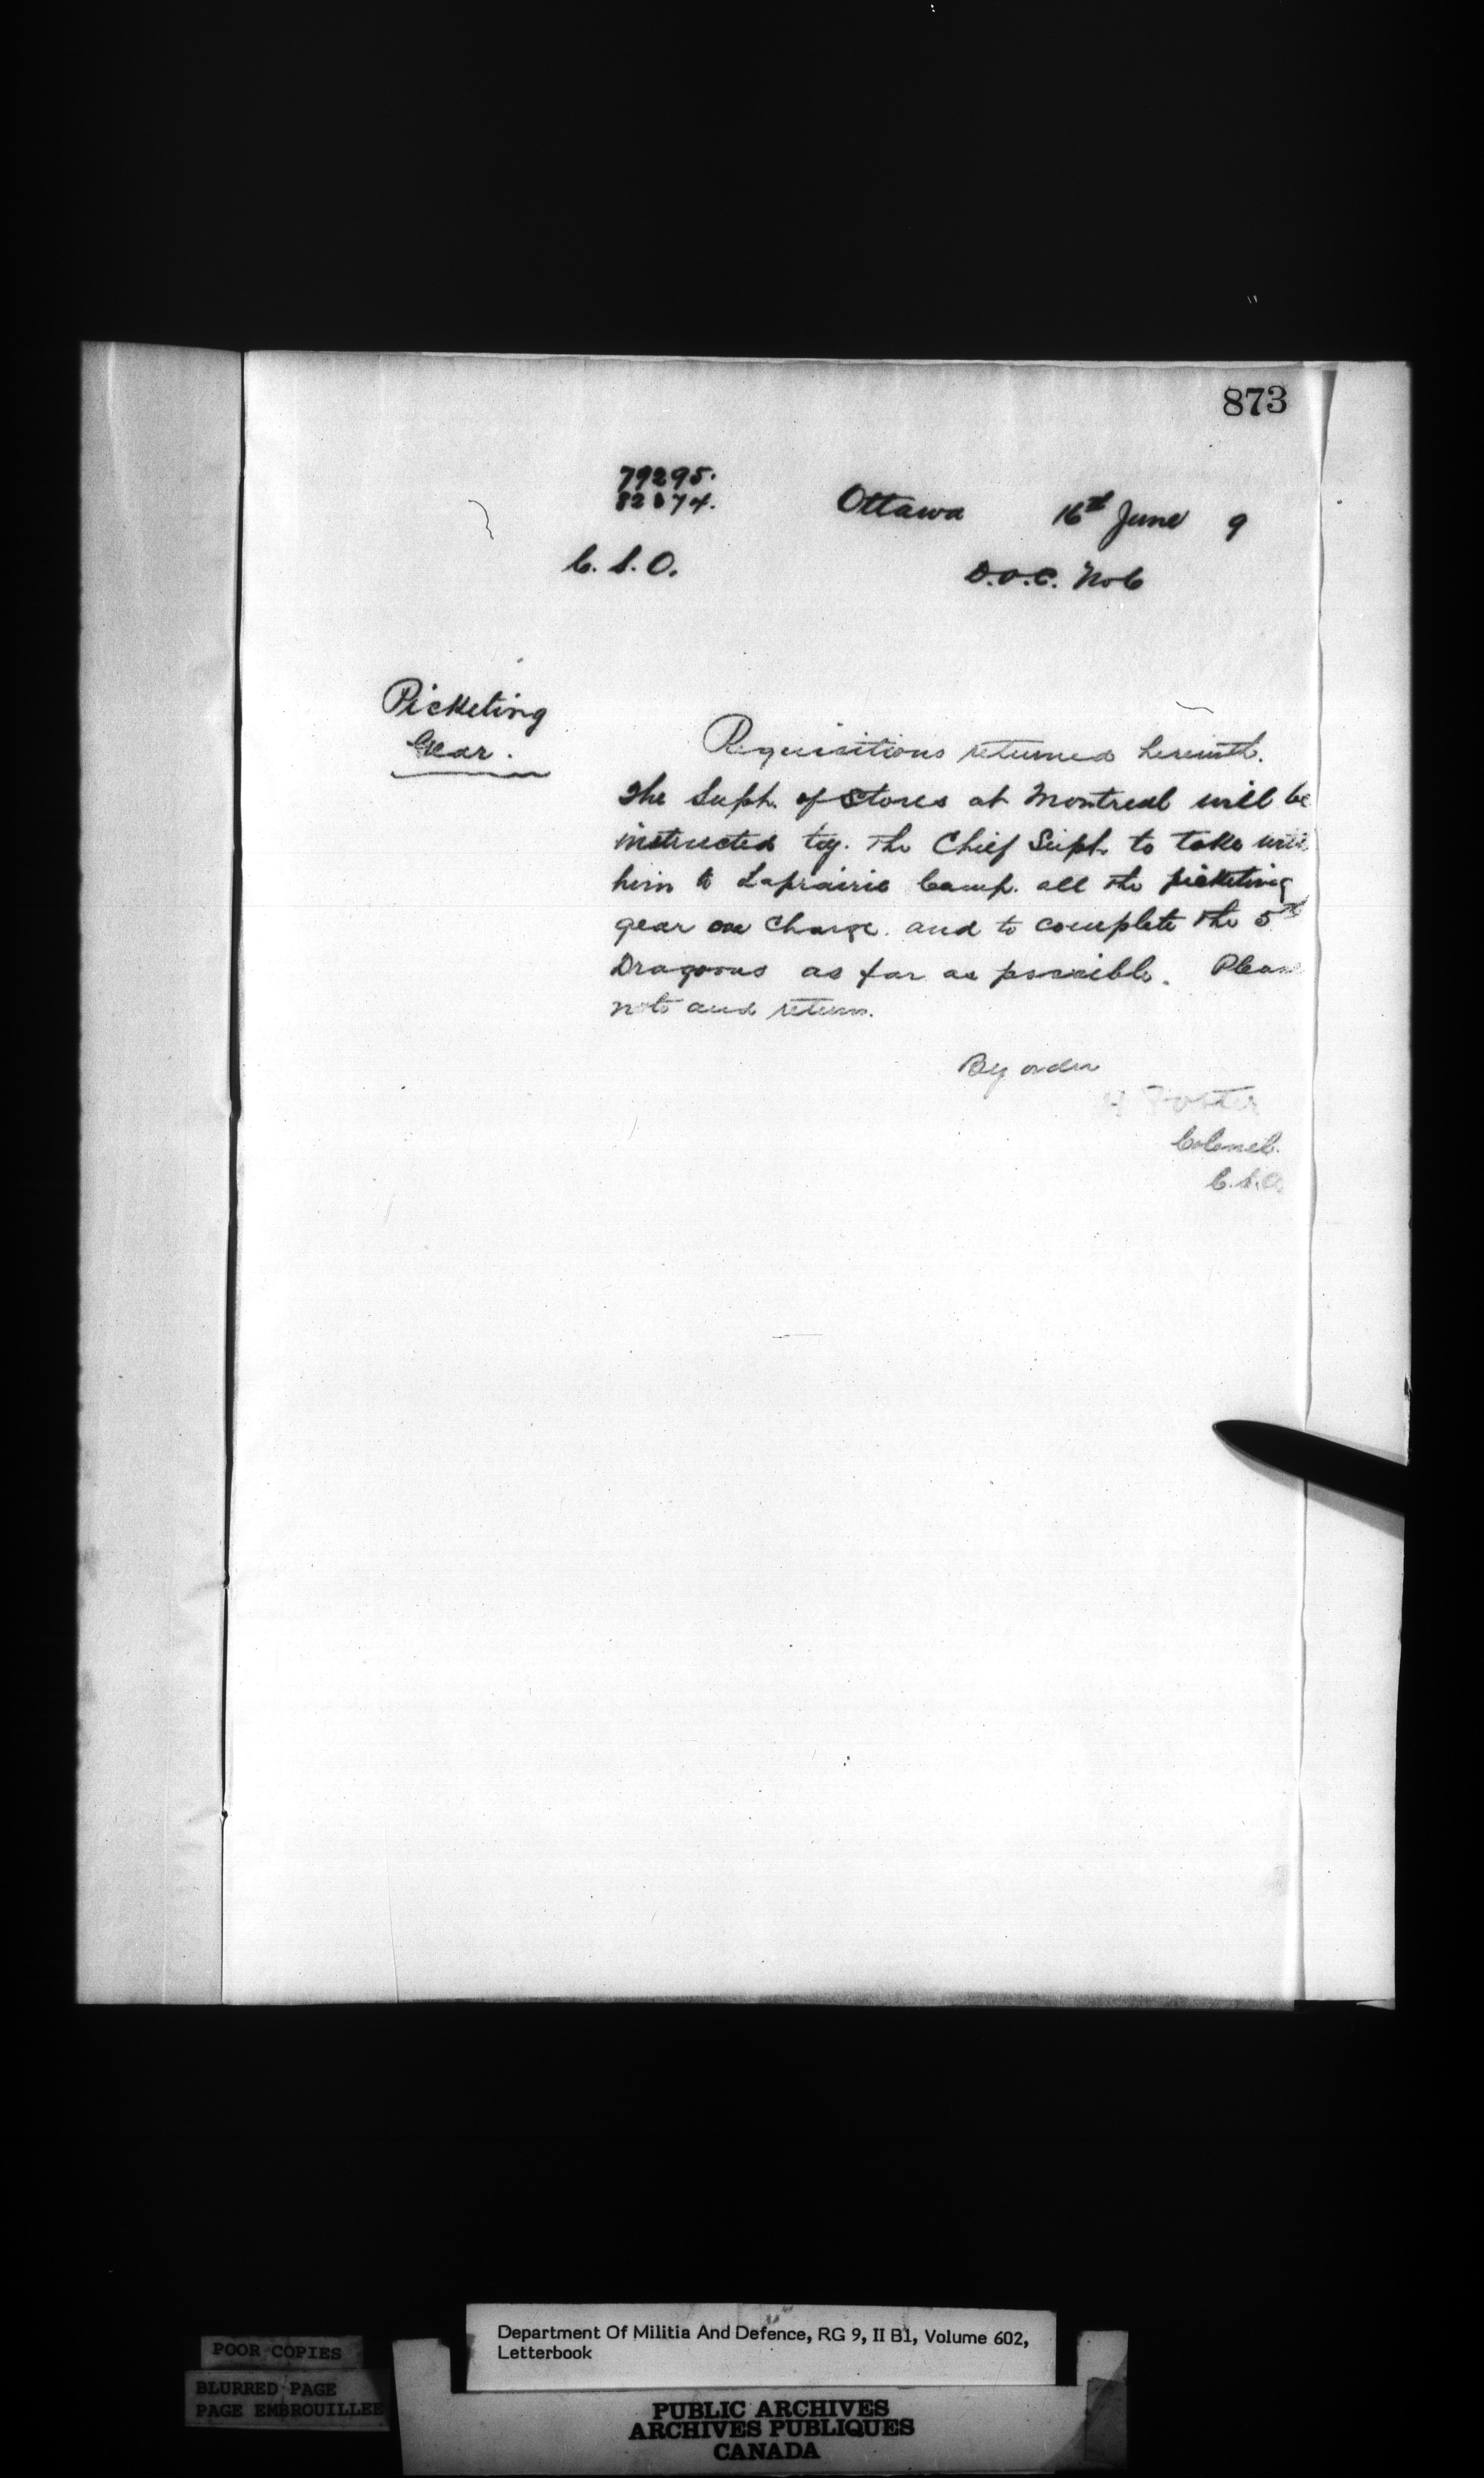 873
79295.
Ottawa 16th June 9
C. S. O.
D.O.C. No 6
Picketing
Gear.
Requisitions returned herewith.
The Supt. of Stores at Montreal will be
instructed by the Chief Supt. to take with
him to Laprairie Camp. all the picketing
gear on charge. and to complete the 5th
Dragoons as far as possible. Please
note and return.
By order
Foster
Colonel.
C.S.O.
POOR COPIES
BLURRED PAGE
PAGE EMBROUILLEE
Department Of Militia And Defence, RG 9, II B1, Volume 602,
Letterbook
PUBLIC ARCHIVES
ARCHIVES PUBLIQUES
CANADA